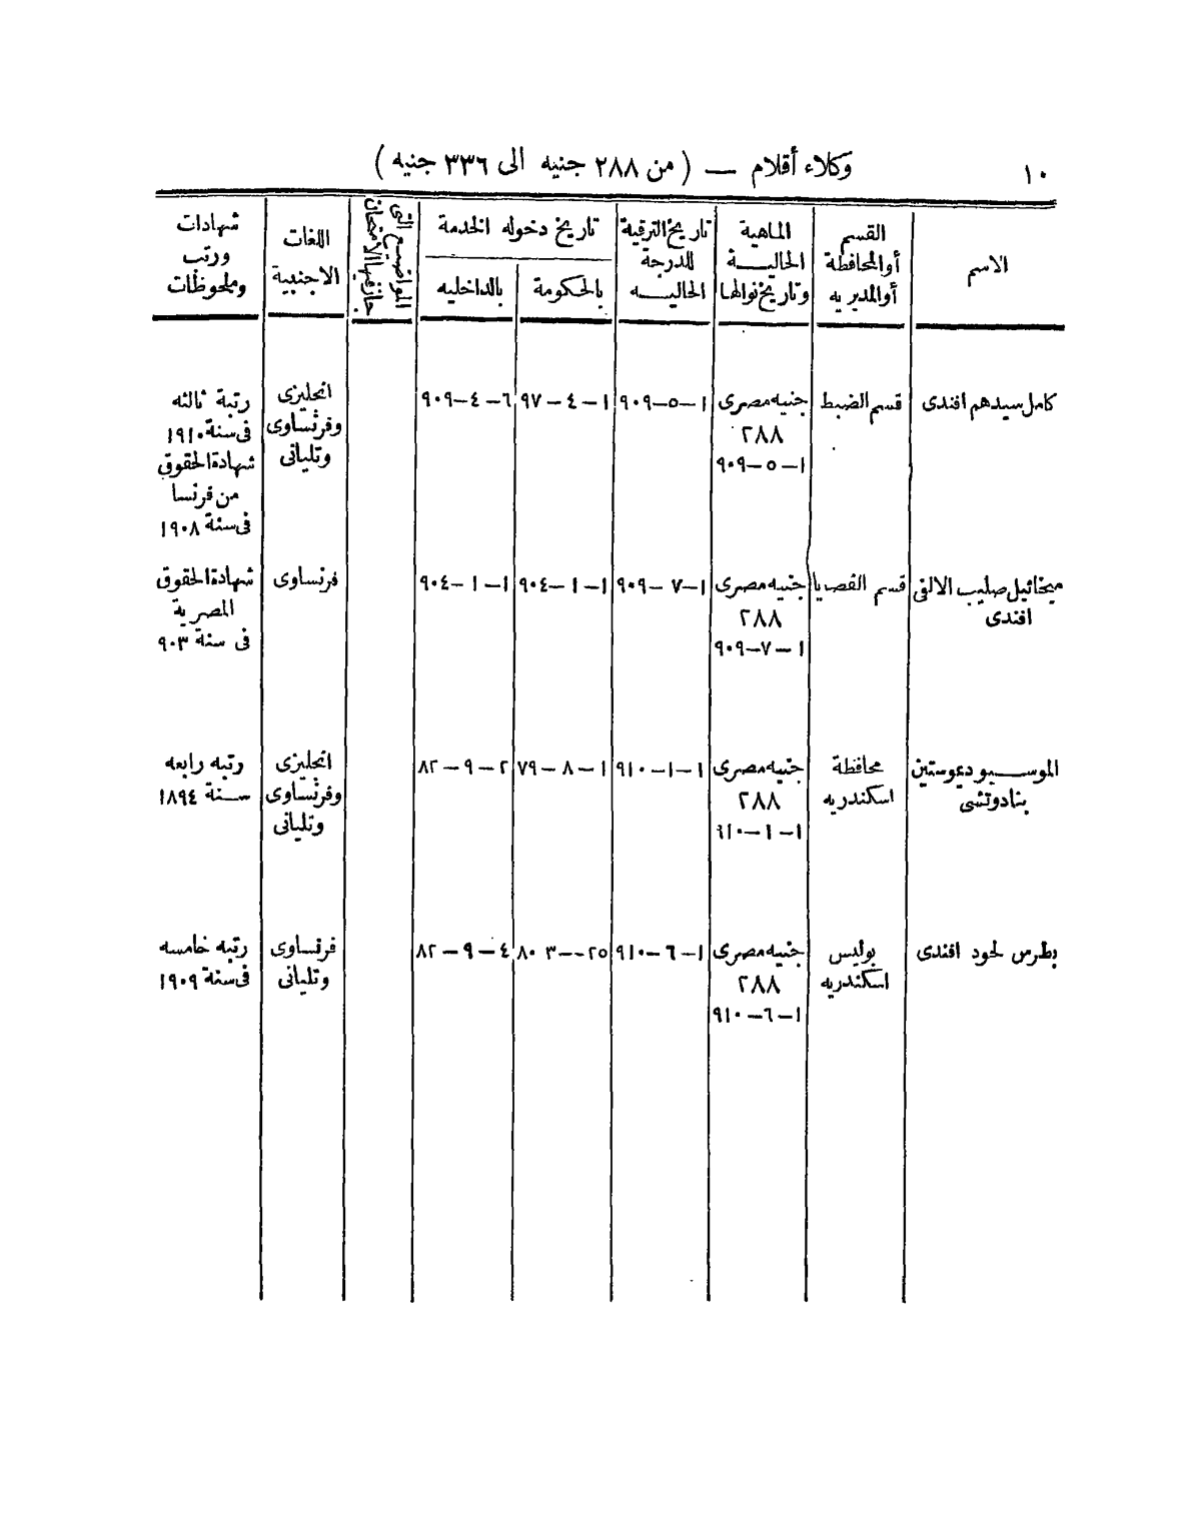 ١٠
وكلاء أقلام — (من ٢٨٨ جنيه الى ٣٣٦ جنيه)
الاسم
القسم
أوالمحافظة
أوالمديريه
الماهية
الحاليـــة
وتاريخ نوالها
تاريخ الترقية
للدرجة
الحاليـــه
تاريخ دخوله الخدمة
بالحكومة
بالداخليه
المواضيع التى
جاز فيها الامتحان
اللغات
الاجنبية
شهادات
ورتب
وملحوظات
كامل سيدهم افندى
قسم الضبط
جنيه مصرى
٢٨٨
١-٥-٩٠٩
١-٥-٩٠٩
١-٤-٩٧
٦-٤-٩٠٩
انجليزى
وفرنساوى
وتليانى
رتبة ثالثه
فى سنة ١٩١٠
شهادة الحقوق
من فرنسا
فى سنة ١٩٠٨
ميخائيل صليب الالفى
افندى
قسم القضايا
جنيه مصرى
٢٨٨
١-٧-٩٠٩
١-٧-٩٠٩
١-١-٩٠٤
١-١-٩٠٤
فرنساوى
شهادة الحقوق
المصرية
فى سنة ٩٠٣
الموســيو ديموستين
بنادوتشى
محافظة
اسكندريه
جنيه مصرى
٢٨٨
١-١-٩١٠
١-١-٩١٠
١-٨-٧٩
٢-٩-٨٢
انجليزى
وفرنساوى
وتليانى
رتبه رابعه
ســنة ١٨٩٤
بطرس لحود افندى
بوليس
اسكندريه
جنيه مصرى
٢٨٨
١-٦-٩١٠
١-٦-٩١٠
٢٥--٣ ٨٠
٤-٩-٨٢
فرنساوى
وتليانى
رتبه خامسه
فى سنة ١٩٠٩